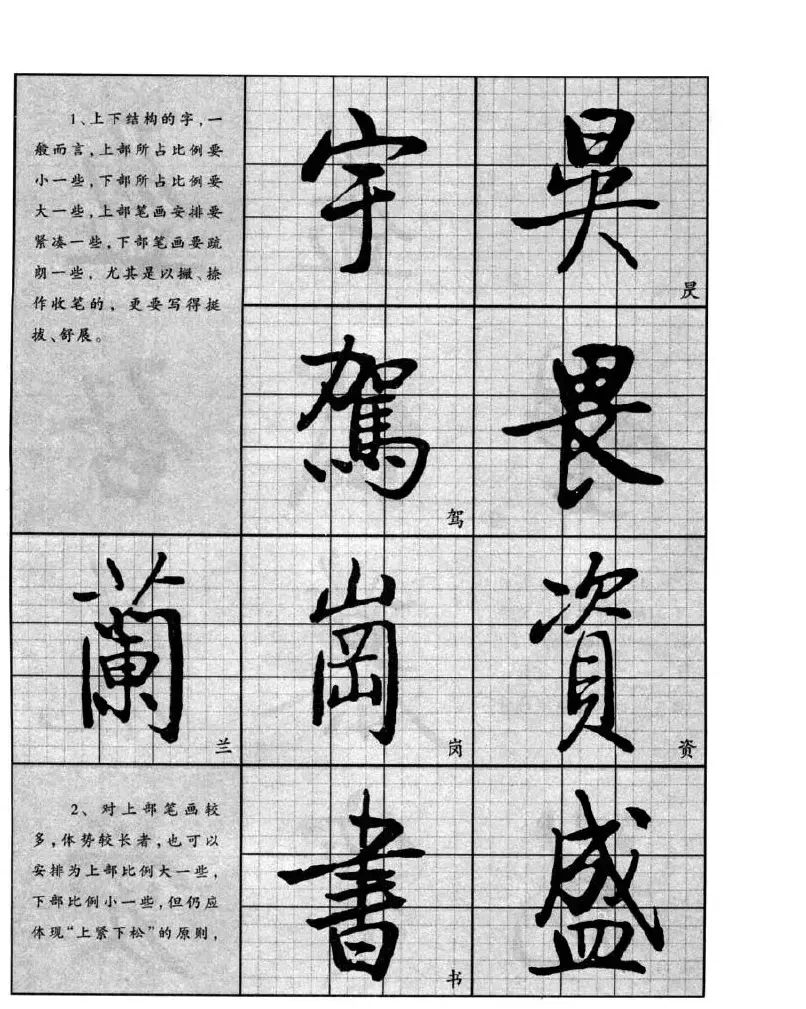 1、上下结构的字,一
般而言,上部所占比例要
小一些,下部所占比例要
大一些,上部笔画安排要
紧凑一些,下部笔画要疏
朗一些,尤其是以撇、捺
作收笔的,更要写得挺
拔、舒展。
宇
昃
駕
驾
畏
蘭
兰
崗
岗
資
资
2、对上部笔画较
多,体势较长者,也可以
安排为上部比例大一些,
下部比例小一些,但仍应
体现“上紧下松”的原则,
書
书
盛